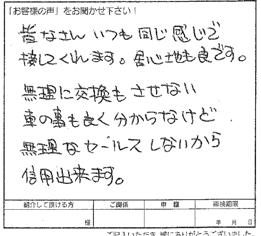 「お客様の声」をお聞かせ下さい!
皆なさん いつも同じ感じで
接してくれます。居心地も良です。
無理に交換もさせない
車の事も良く分からなけど
無理なセールスしないから
信用出来ます。
紹介して頂ける方 ご関係 車種 車検期限
様 年 月 日
ご記入いただき、誠にありがとうございました。